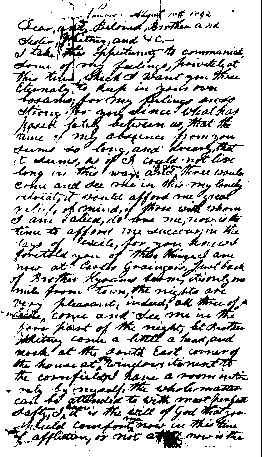 Nauvoo August 18th 1842
Dear, and Beloved, Brother and
Sister, Whitney, and &c.—
I take this oppertunity to communi
some of my feelings, privetely at
this time, which I want you three
Eternaly to keep in your own
bosams; for my feelings are so
strong for you since what has
pased lately between us, that the
time of my absence from you
seems so long, and dreary, that
it seems, as if I could not live
long in this way: and three would
come and see me in this my lonely
retreat, it would afford me great
relief, of mind, if those with whom
I am alied, do love me, now is the
time to afford me succour, in the
days of exile, for you know I
foretold you of these things. I am
now at Carlos Graingers, Just back
of Brother Hyrams farm, it is only one
mile from town, the nights are
very pleasant, indeed, all three of
come and See me in the
fore part of the night, let Brother
Whitney come a little a head, and
nock at the south East corner of
the house at window; it is next to
the cornfield, I have a room
by myself, the whole matter
can be attended to with most perfect
safty, I it is the will of God that you
should comfort now in this time
of affliction, or not at now is the